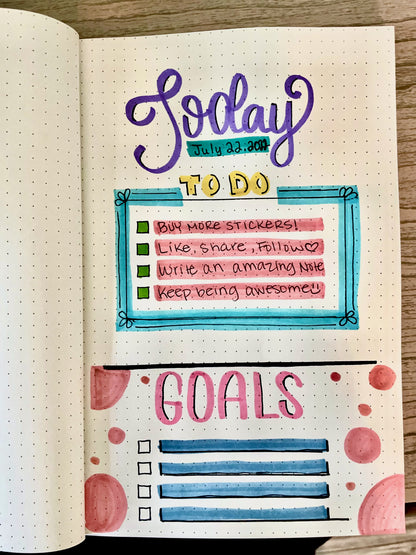 Today
July 22.
TO DO
BUY MORE STICKERS!
Like, Share, Follow♡
Write an amazing Note
Keep being awesome☺
GOALS